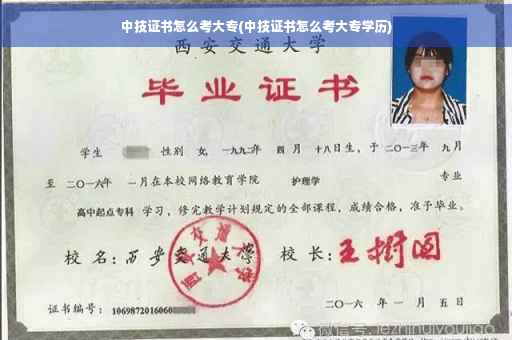 中技证书怎么考大专(中技证书怎么考大专学历)
西安交通大学
毕业证书
学生 性别 女, 一九九二年 四月 十八日生, 于 二〇一三年 九月
至 二〇一六年 一月在本校网络教育学院 护理学 专业
高中起点专科 学习, 修完教学计划规定的全部课程, 成绩合格, 准予毕业。
校 名: 西安交通大学 校 长: 王树国
西安交通大学
证书编号: 1069872016060
二〇一六 年 一 月 五 日
微信号: jezhihuiyoujiao